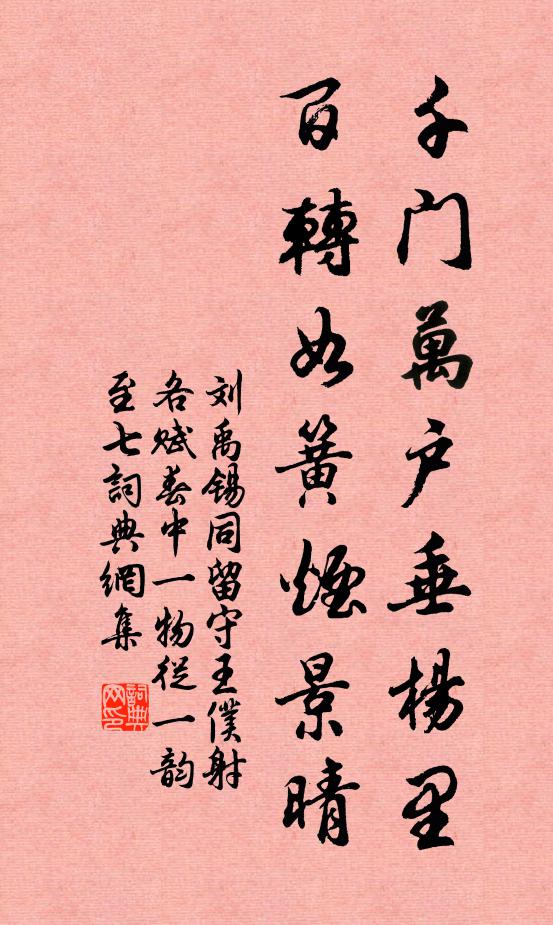 千门萬户垂楊里
百轉如簧煙景晴
刘禹锡同留守王僕射
各赋春中一物從一韵
至七詞典網集
詞典
网印